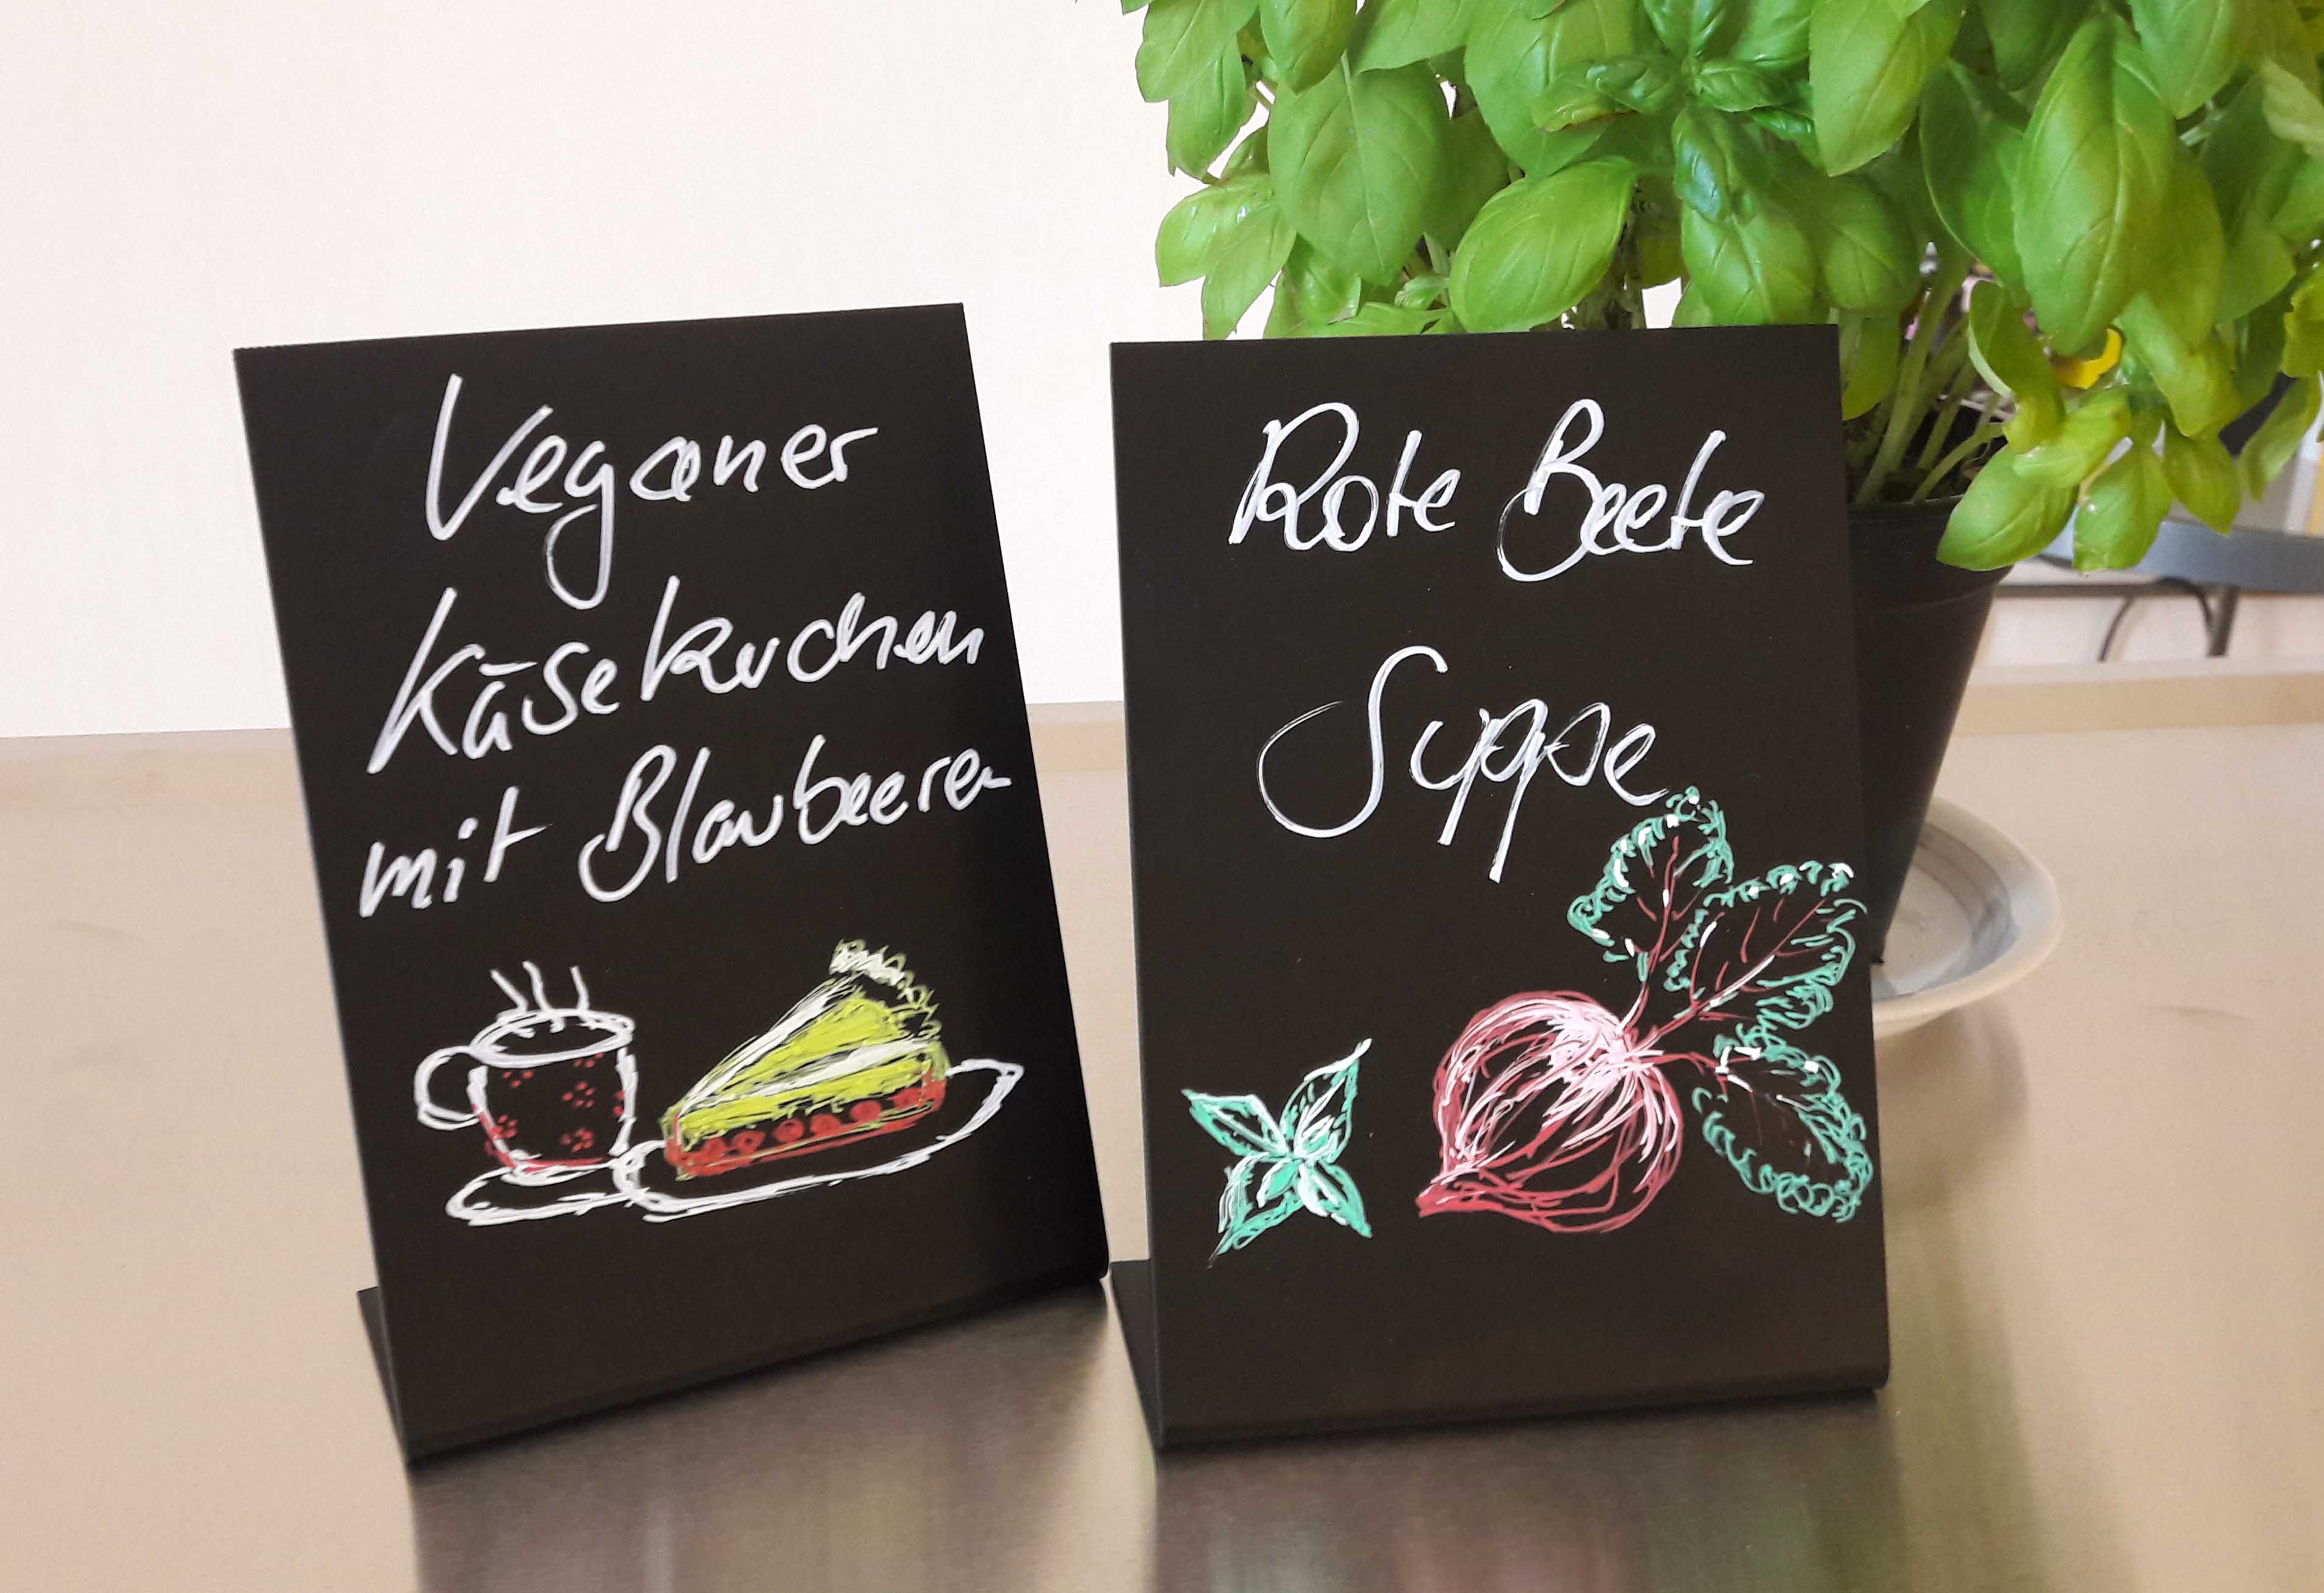 Veganer
Käsekuchen
mit Blaubeeren
Rote Beete
Suppe